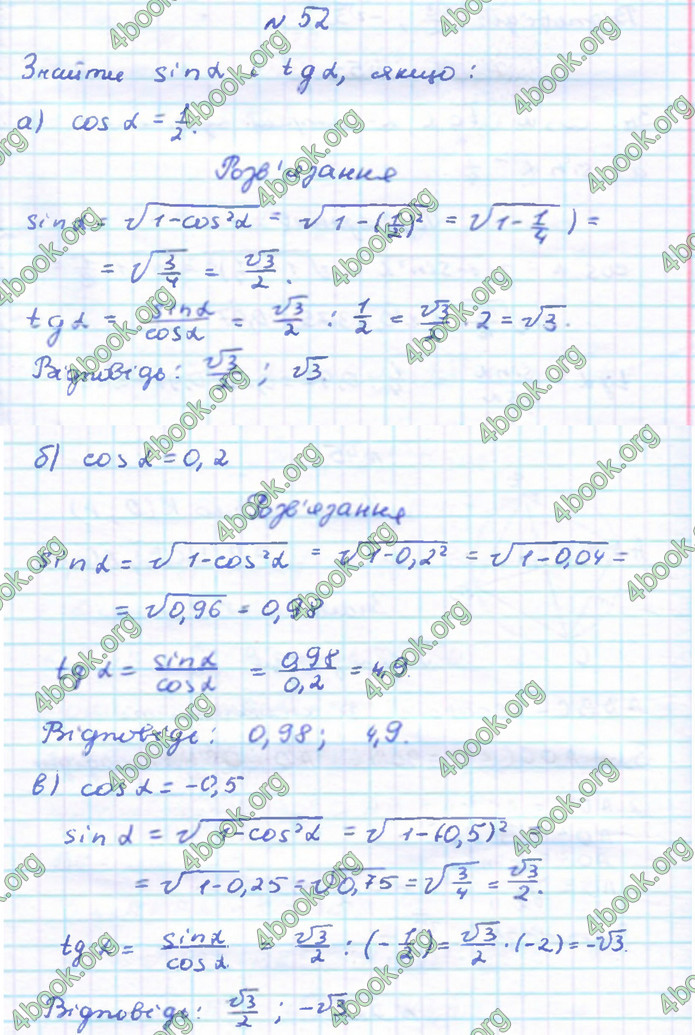 № 52
Знайти sin α і tg α, якщо:
а) cos α = 1/2.
Розв'язання
sin α = √(1-cos²α) = √(1-(1/2)²) = √(1-1/4) ) =
= √(3/4) = √3/2.
tg α = sin α/cos α = √3/2 : 1/2 = √3/2 · 2 = √3.
Відповідь: √3/2; √3.
б) cos α = 0,2
Розв'язання
sin α = √(1-cos²α) = √(1-0,2²) = √(1-0,04) =
= √0,96 = 0,98
tg α = sin α/cos α = 0,98/0,2 = 4,9.
Відповідь: 0,98; 4,9.
в) cos α = -0,5
sin α = √(1-cos²α) = √(1-(0,5)²) =
= √(1-0,25) = √0,75 = √(3/4) = √3/2.
tg α = sin α/cos α = √3/2 : (-1/2) = √3/2 · (-2) = -√3.
Відповідь: √3/2; -√3
4book.org